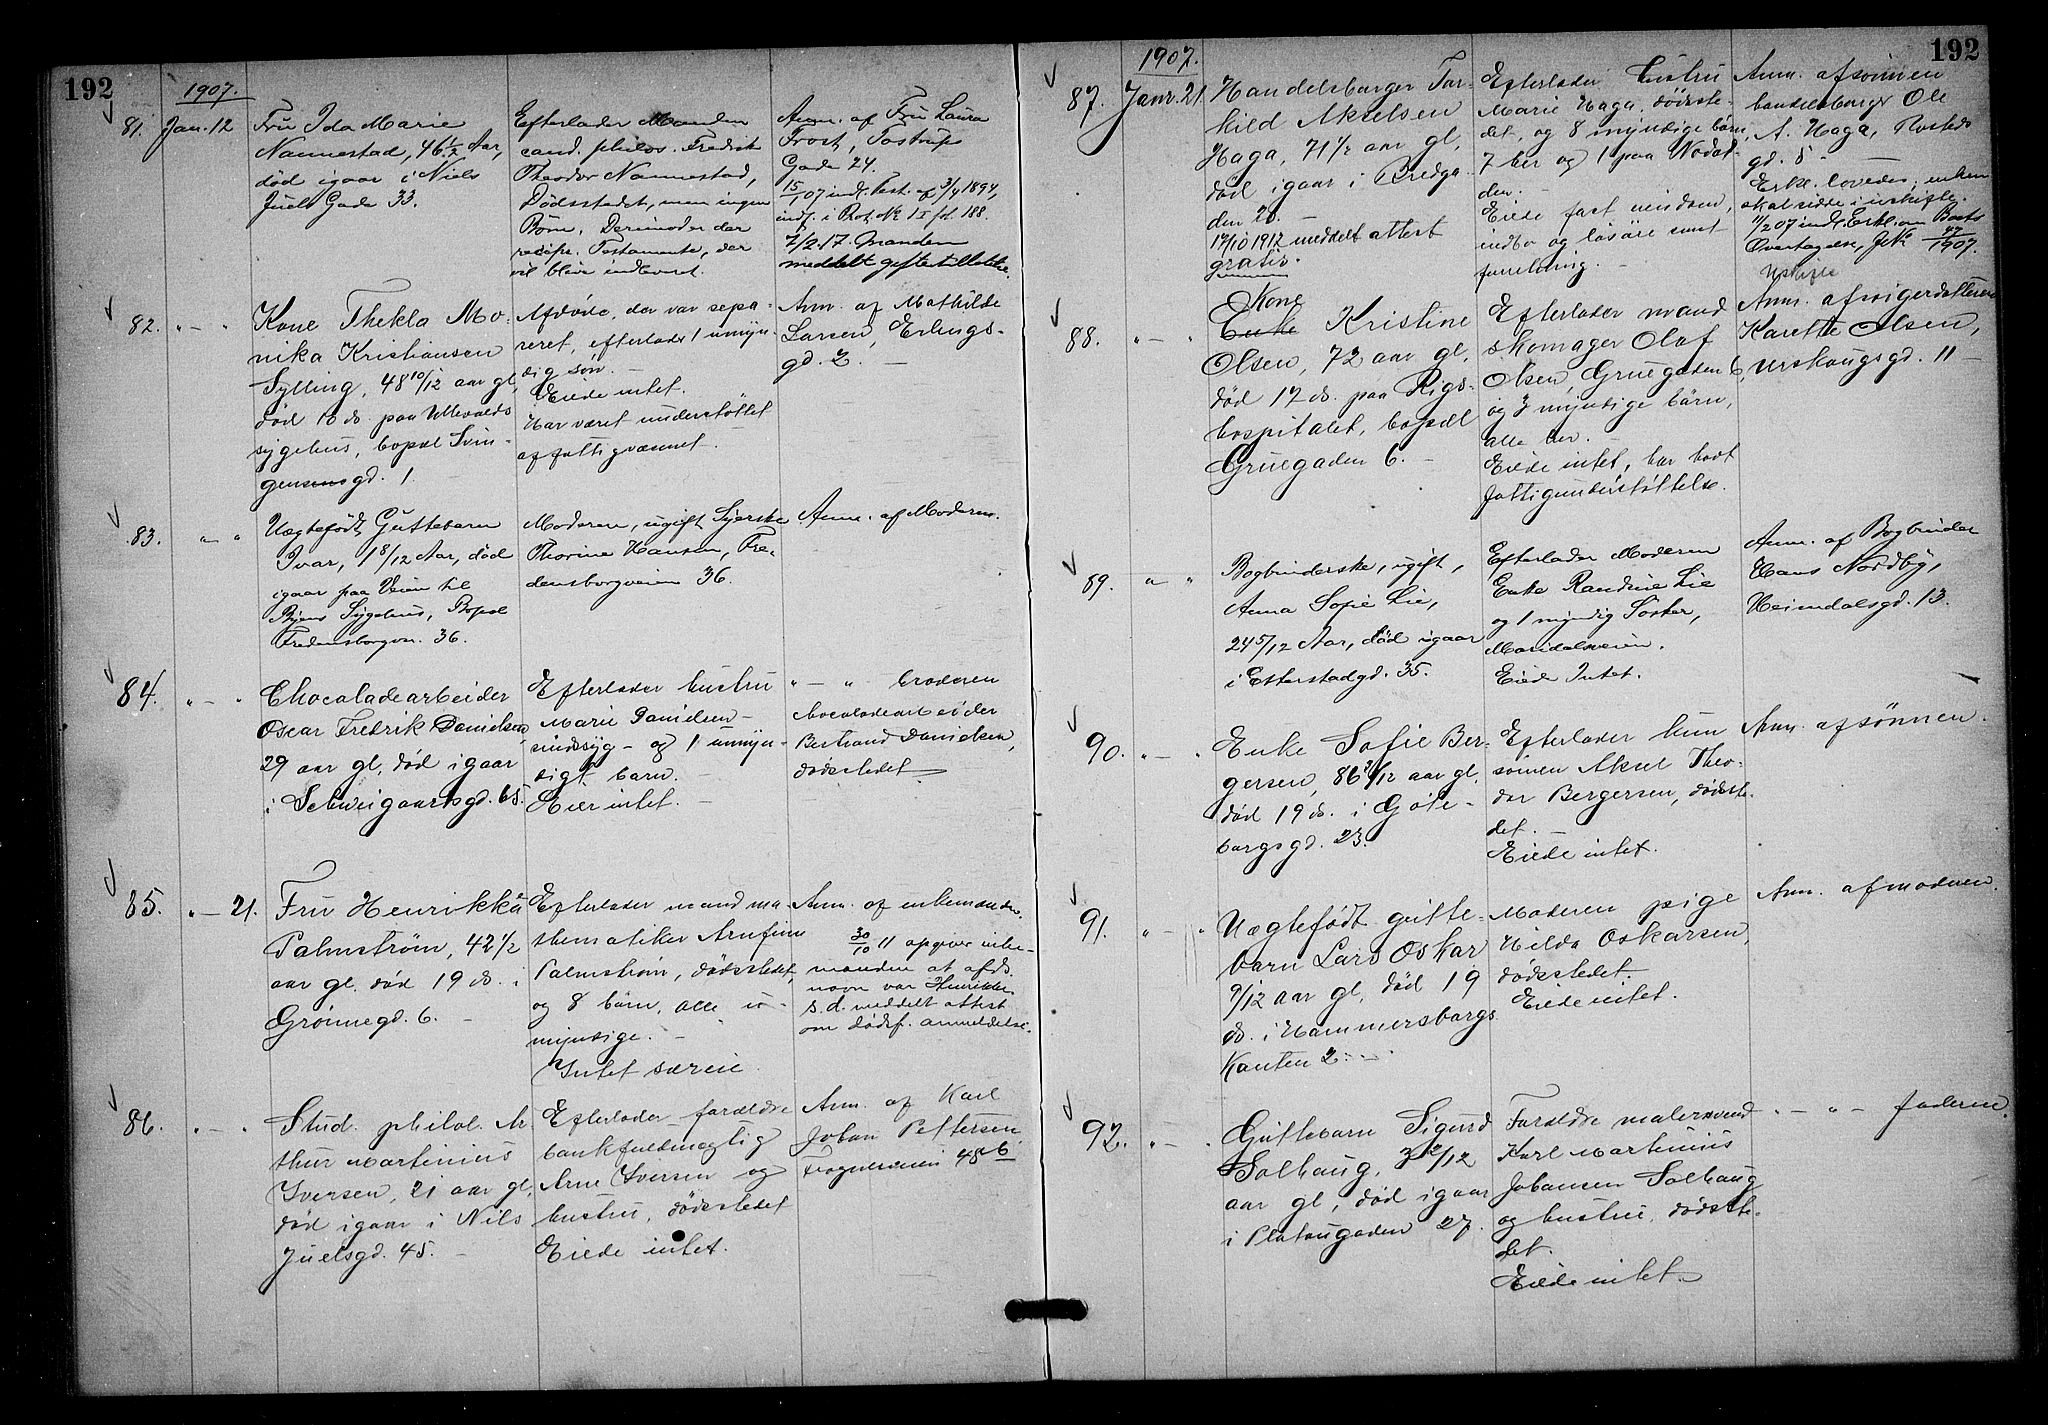 192
1907.
81. Jan. 12
Fru Ida Marie
Nannestad, 46 1/2 Aar,
död igaar i Niels
Juels Gade 33.
Efterlader Manden
cand. philos. Fredrik
Theodor Nannestad,
Dödsstedet, men ingen
Börn. Derimoder der
recipr. Testamente, der
vil blive indleveret.
Anm. af Fru Laura
Frost, Tostrups
Gade 24.
15/1 07 indl. Test. af 3/4 1894,
indf. i Prot. No 1 I fol. 188.
7/2. 17. Manden
meddelt giftertilladelse.
82. " — "
Kone Thekla Mo-
nika Kristiansen
Sylling, 48 10/12 aar gl,
död 10 ds. paa Ullevolds
sygehus, bopæl Svin-
gensgd. 1
Afdöde, der var sepa-
reret, efterlader 1 umyn-
dig sön. —
Eiede intet.
Har været understöttet
af fattigvæsenet. —
Anm. af Mathilde
Larsen, Erlings-
gd. 2. —
83. " — "
Uægtefödt Guttebarn
Ivar, 1 8/12 Aar, död
igaar paa Veien til
Byens Sygehus, Bopæl
Fredensborgvn. 36.
Moderen, ugift Syerske
Thorine Hansen, Fre-
densborgveien 36.
Anm. af Moderen.
84. " — "
Chocoladearbeider
Oscar Fredrik Danielsen,
29 aar gl, död igaar
i Schweigaardsgd. 65.
Efterlader hustru
Marie Danielsen —
sindssyg — og 1 umyn-
digt barn. —
Eier intet. —
" — " broderen
chocoladearbeider
Bertrand Danielsen,
dödsstedet. —
85. " — 21.
Fru Henrikka
Palmström, 42 1/2
aar gl. död 19 ds. i
Grönnegd. 6. —
Efterlader mand ma-
thematiker Arnfinn
Palmström, dödsstedet,
og 8 börn, alle u-
myndige. —
Intet særeie.
Anm. af enkemanden.
30/10 11 opgiver enke-
manden at afds.
navn var Henrikke
s. d. meddelt attest
om dödsf. anmeldelse.
86. " — "
Stud. philol. Ar
thur Martinius
Iversen, 21 aar gl,
död igaar i Nils
Juelsgd. 45. —
Efterlader forældre
bankfuldmægtig
Arne Iversen og
hustru, dödsstedet
Eiede intet.
Anm. af Karl
Johan Pettersen,
Frognerveien 48 b
192
1907.
87. Janr. 21.
Handelsborger Tor-
kild Akselsen
Haga, 71 1/2 aar gl,
död igaar i Bredga-
den 20.
17/10 1912 meddelt attest
gratis.
Efterlader hustru
Marie Haga, dödsste-
det, og 8 myndige börn,
7 her og 1 paa Nodod-
den. —
Eiede fast eiendom,
indbo og lösöre samt
forretning. —
Anm. af sönnen
handelsborger Ole
A. Haga, Tosteds
gd. 5 —
Erkl. lovedes, enken
skal sidde i uskifte.
11/2 07 indl. Erkl. om Boets
Overtagelse, 1907.
Uskifte
88. " — "
Kone
Enke Kristine
Olsen, 72 aar gl,
död 17 ds. paa Rigs-
hospitalet, bopæl
Gruegaden 6. —
Efterlader mand
skomager Olaf
Olsen, Gruegaden 6,
og 3 myndige börn,
alle her. —
Eiede intet, har havt
fattigunderstöttelse.
Anm. af svigerdatteren
Karette Olsen,
Urskougsgd. 11 —
89. " "
Bogbinderske, ugift,
Anna Sofie Lie,
24 5/12 Aar, död igaar
i Etterstadgd. 35.
Efterlader Moderen
Enke Randine Lie
og 1 myndig Söster,
Maridalsveien.
Eiede Intet.
Anm. af Bogbinder
Hans Nordby,
Heimdalsgd. 13.
90. " — "
Enke Sofie Ber-
gersen, 86 3/12 aar gl.
död 19 ds. i Göte-
borgsgd. 23.
Efterlader kun
sönnen Aksel Theo-
dor Bergersen, dödsste-
det. —
Eiede intet.
Anm. af sönnen.
91. " — "
Uægtefödt gutte-
barn Lars Oskar
9/12 aar gl, död 19
ds. i Hammersborgs
Kanten 2.
Moderen pige
Hilda Oskarsen,
dödsstedet.
Eiede intet.
Anm. af moderen.
92. " — "
Guttebarn Sigurd
Solhaug, 3 2/12
aar gl, död igaar
i Platougaden 27.
Forældre malersvend
Karl Martinius
Johansen Solhaug
og hustru, dödsste-
det.
Eiede intet
" — " — faderen.